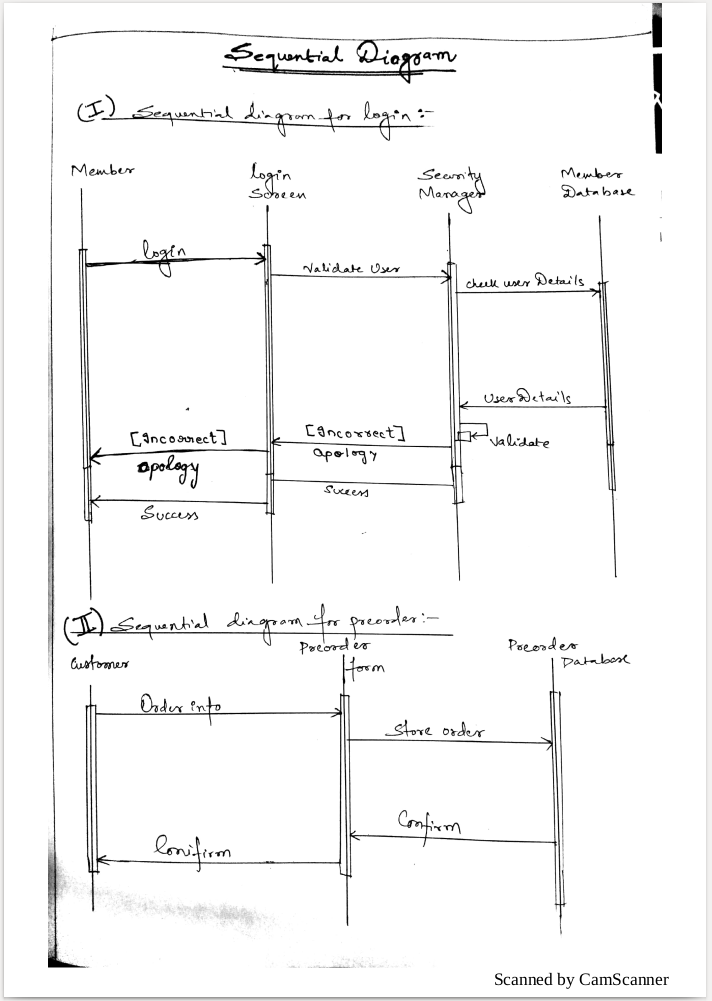 Sequential Diagram
(I) Sequential diagram for login :-
Member
login
Screen
Security
Manager
Member
Database
login
Validate User
check user Details
User Details
Validate
[Incorrect]
apology
[Incorrect]
apology
Success
Success
(II) Sequential diagram for preorder:-
Customer
Preorder
form
Preorder
Database
Order info
Store order
Confirm
Confirm
Scanned by CamScanner